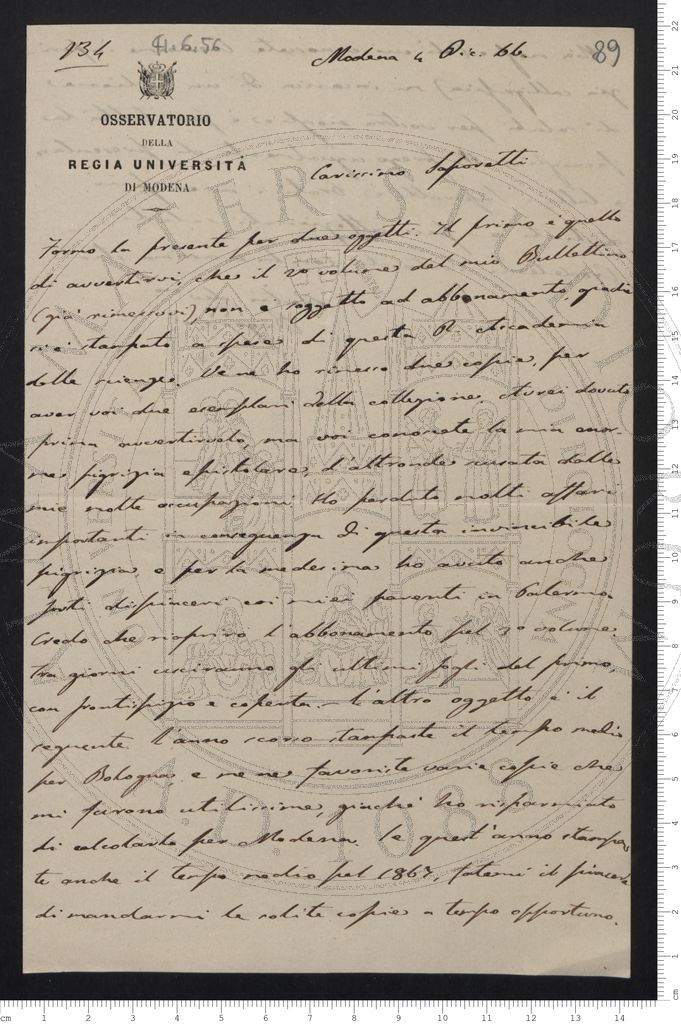 134
4.6.56
Modena 4 Dic. 66
89
OSSERVATORIO
DELLA
REGIA UNIVERSITÀ
DI MODENA
Carissimo Saporetti
Formo la presente per due oggetti. Il primo è quello
di avvertirvi, che il 2o volume del mio Bullettino
(già rimessovi), non è soggetto ad abbonamento, giacchè
si è stampato a spese di questa R. Accademia
delle scienze. Ve ne ho rimesso due copie, per
aver voi due esemplari della collezione. Avrei dovuto
prima avvertirvelo, ma voi conoscete la mia enor-
me pigrizia epistolare, d'altronde scusata dalle
mie molte occupazioni. Ho perduto molti affari
importanti in conseguenza di questa invincibile
pigrizia e per la medesima ho avuto anche
forti dispiaceri coi miei parenti in Palermo.
Credo che riaprirò l'abbonamento pel 3o volume.
Tra giorni usciranno gli ultimi fogli del primo,
con frontispizio e coperta. - L'altro oggetto è il
seguente. L'anno scorso stampaste il tempo medio
per Bologna, e me ne favoriste varie copie che
mi furono utilissime, giacchè ho risparmiato
di calcolarlo per Modena. Se quest'anno stampa-
te anche il tempo medio pel 1867, fatemi il piacere
di mandarmi le solite copie a tempo opportuno.
ALMA MATER STUDIORUM
A.D. 1088